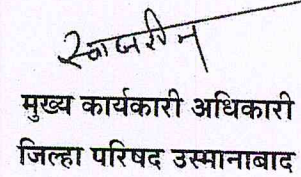 स्वाक्षरीत
मुख्य कार्यकारी अधिकारी
जिल्हा परिषद उस्मानाबाद